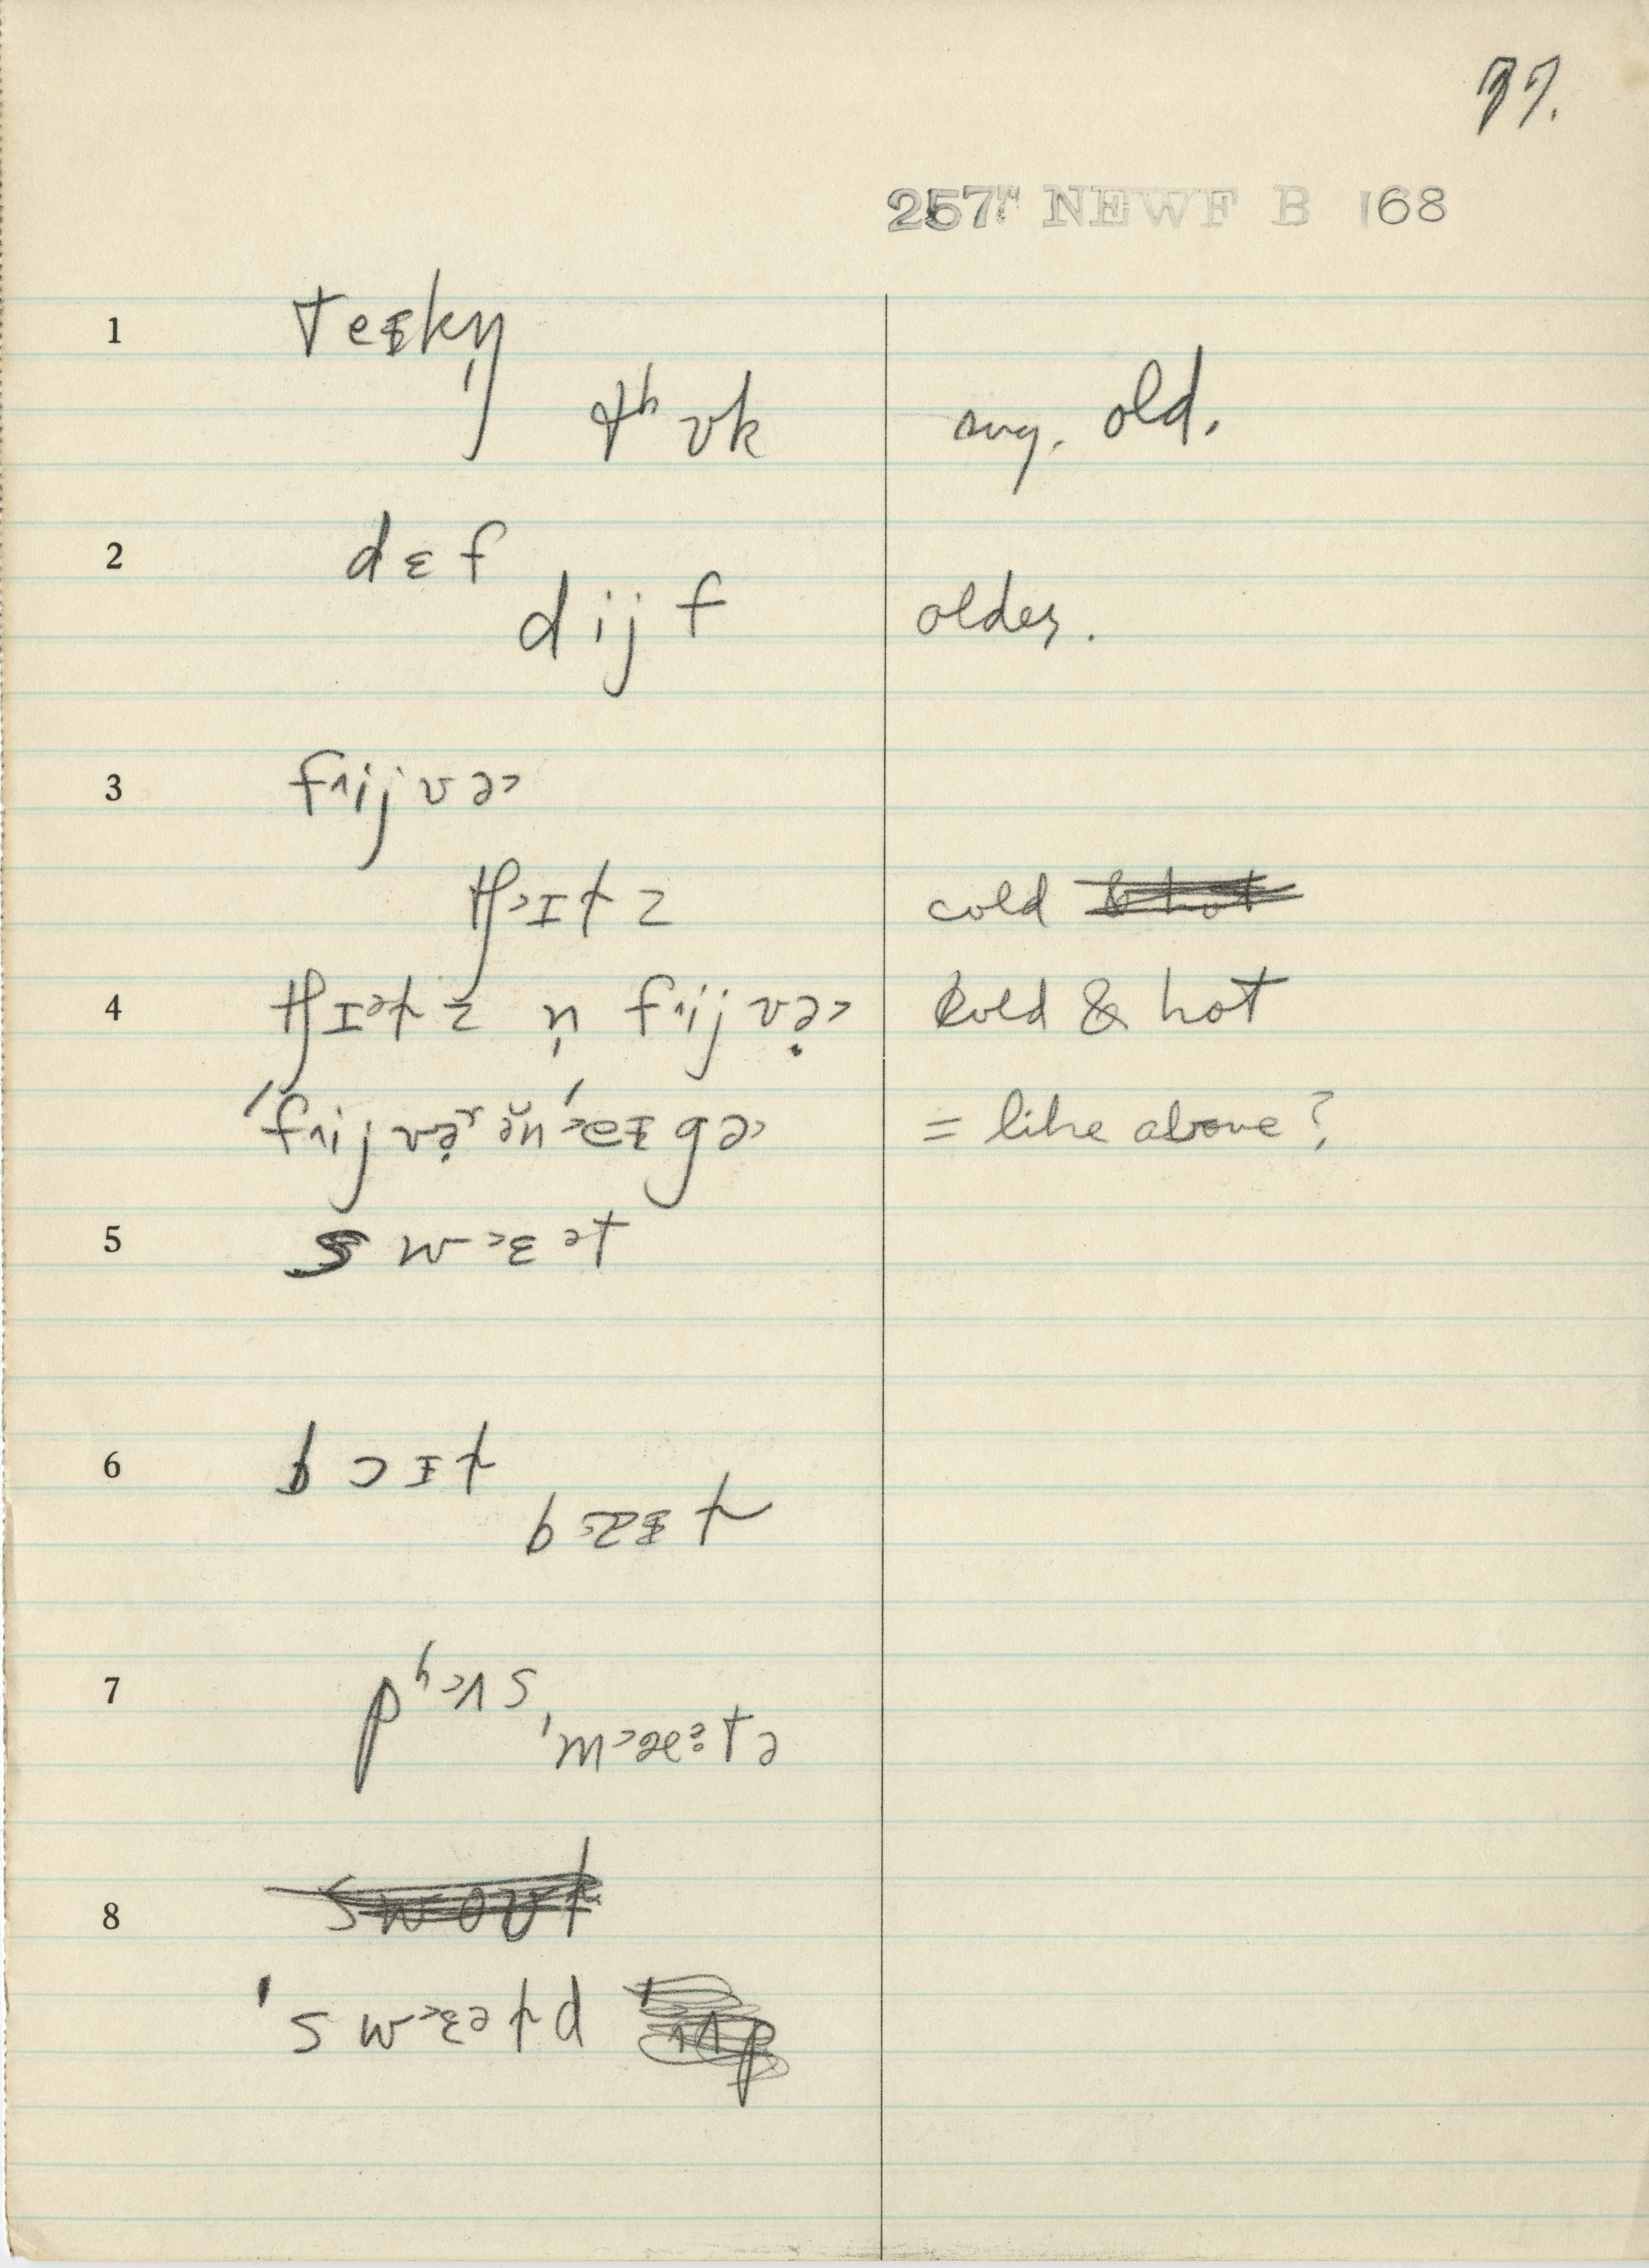 77.
257 NEWF B 168
1 teᵻkŋ̩
tʰʊk sug. old.
2 dɛf
dijf older.
3 f˄ijvə˃
tʃ˃ɪtz cold
4 tʃɪətz n̩ f˄ijvə̣˃ Cold & hot
ˈf˄ijvə̣ʳ ə̆nˈ˃eᵻgə˃ = like above?
5 sw˃ɛət
6 bɔɪt
7 pʰ˃ʌs
ˌm˃æ:tə
8
ˈsw˃ɛətp